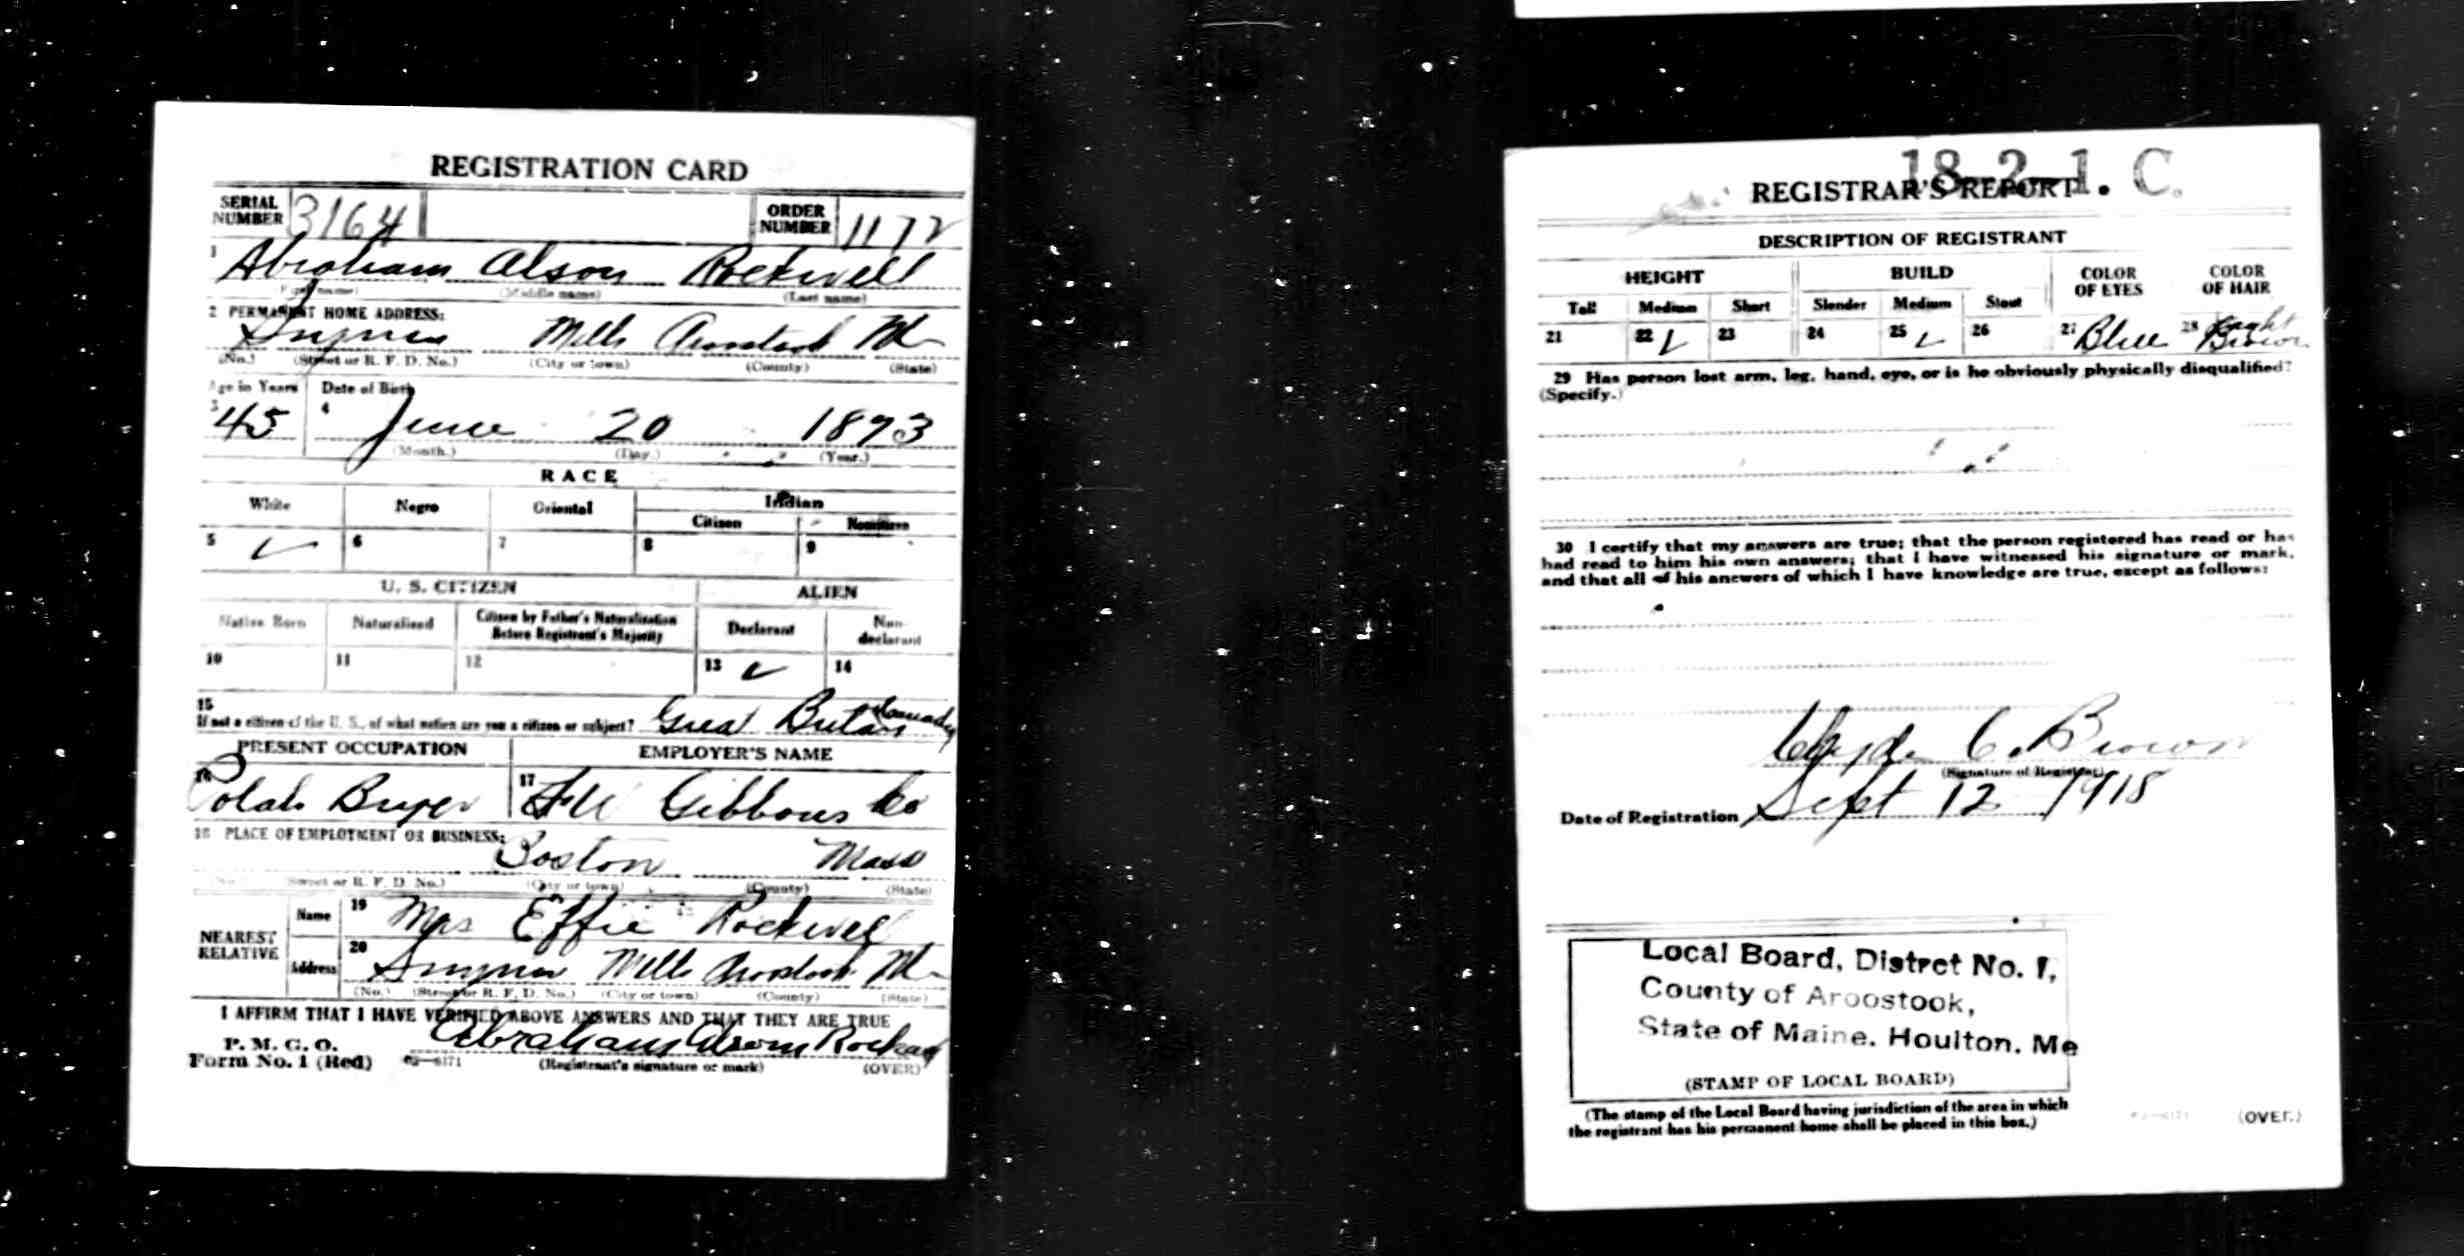 REGISTRATION CARD
SERIAL NUMBER 3164 ORDER NUMBER 1172
1 Abraham Alson Rockwell
(First name) (Middle name) (Last name)
2 PERMANENT HOME ADDRESS:
Smyrna Mills Aroostook Me
(No.) (Street or R. F. D. No.) (City or town) (County) (State)
Age in Years Date of Birth
3 45 4 June 20 1873
(Month.) (Day.) (Year.)
RACE
White Negro Oriental Indian
Citizen Noncitizen
5 ✓ 6 7 8 9
U. S. CITIZEN ALIEN
Native Born Naturalized Citizen by Father's Naturalization Before Registrant's Majority Declarant Non-declarant
10 11 12 13 ✓ 14
15 If not a citizen of the U. S., of what nation are you a citizen or subject? Great Britain Canada
PRESENT OCCUPATION EMPLOYER'S NAME
16 Potato Buyer 17 Gibbons Co
18 PLACE OF EMPLOYMENT OR BUSINESS:
Boston Mass
(No.) (Street or R. F. D. No.) (City or town) (County) (State)
NEAREST RELATIVE Name 19 Mrs Effie Rockwell
Address 20 Smyrna Mills Aroostook Me
(No.) (Street or R. F. D. No.) (City or town) (County) (State)
I AFFIRM THAT I HAVE VERIFIED ABOVE ANSWERS AND THAT THEY ARE TRUE
P. M. G. O.
Form No. 1 (Red) Abraham Alson Rockwell
(Registrant's signature or mark) (OVER)
18-2-1. C.
REGISTRAR'S REPORT
DESCRIPTION OF REGISTRANT
HEIGHT BUILD COLOR OF EYES COLOR OF HAIR
Tall Medium Short Slender Medium Stout
21 22 ✓ 23 24 25 ✓ 26 27 Blue 28 Light Brown
29 Has person lost arm, leg, hand, eye, or is he obviously physically disqualified?
(Specify.)
30 I certify that my answers are true; that the person registered has read or has
had read to him his own answers; that I have witnessed his signature or mark,
and that all of his answers of which I have knowledge are true, except as follows:
Clyde C. Brown
(Signature of Registrar)
Date of Registration Sept 12 1918
Local Board, Distret No. 1,
County of Aroostook,
State of Maine. Houlton. Me
(STAMP OF LOCAL BOARD)
(The stamp of the Local Board having jurisdiction of the area in which
the registrant has his permanent home shall be placed in this box.)
(OVER.)